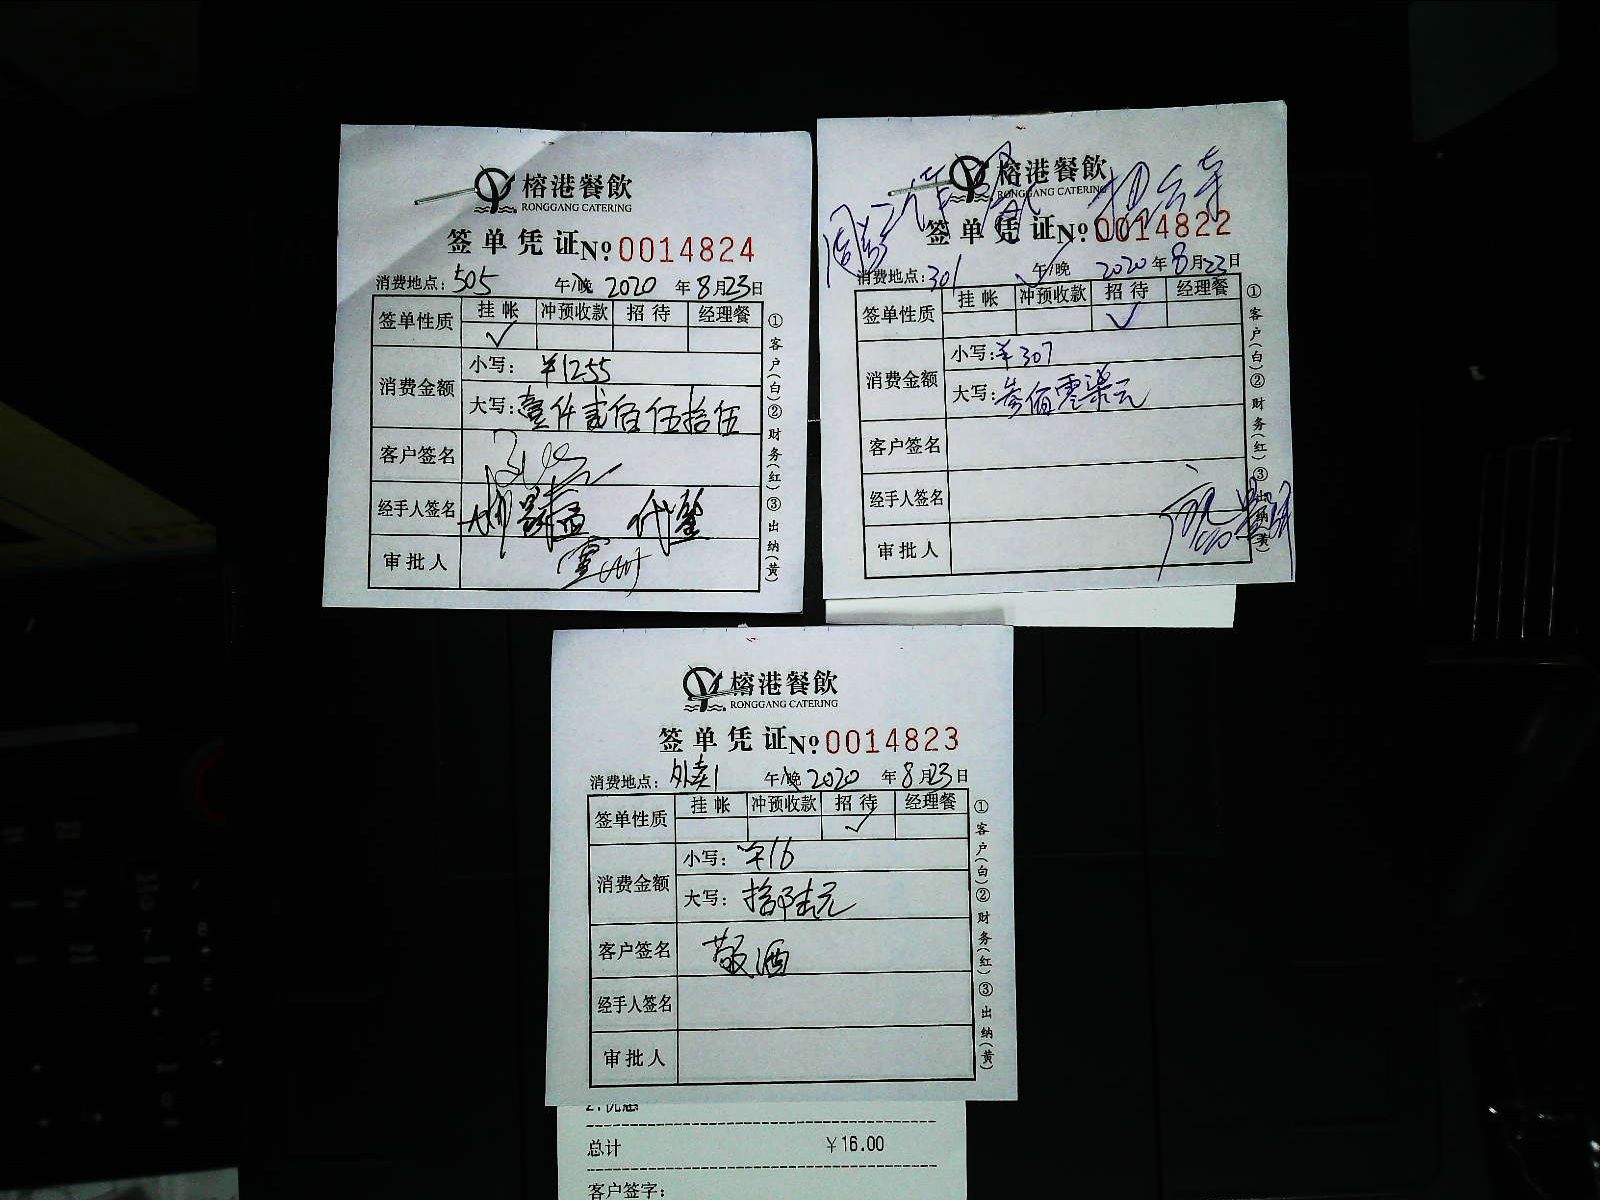 榕港餐飲
RONGGANG CATERING
签单凭证№0014824
消费地点：505 午/晚 2020年8月23日
签单性质 挂帐 冲预收款 招待 经理餐
✓
消费金额 小写：¥1255
大写：壹仟贰佰伍拾伍
客户签名
经手人签名 代签
审批人
①客户(白)②财务(红)③出纳(黄)
榕港餐飲
RONGGANG CATERING
签单凭证№0014822
消费地点：301 午/晚 2020年8月23日
签单性质 挂帐 冲预收款 招待 经理餐
✓
消费金额 小写：¥307
大写：叁佰零柒元
客户签名
经手人签名
审批人
①客户(白)②财务(红)③出纳(黄)
榕港餐飲
RONGGANG CATERING
签单凭证№0014823
消费地点：外卖1 午/晚 2020年8月23日
签单性质 挂帐 冲预收款 招待 经理餐
✓
消费金额 小写：¥16
大写：拾陆元
客户签名 敬酒
经手人签名
审批人
①客户(白)②财务(红)③出纳(黄)
总计 ¥16.00
客户签字：